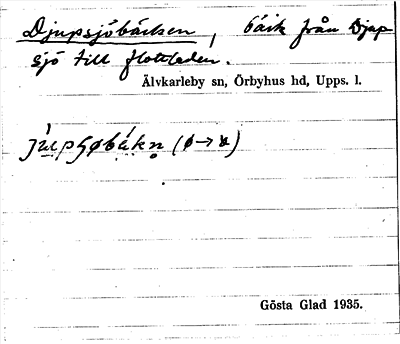 Djupsjöbäcken, bäck från Djup-
sjö till flottleden.
Älvkarleby sn, Örbyhus hd, Upps. l.
Gösta Glad 1935.